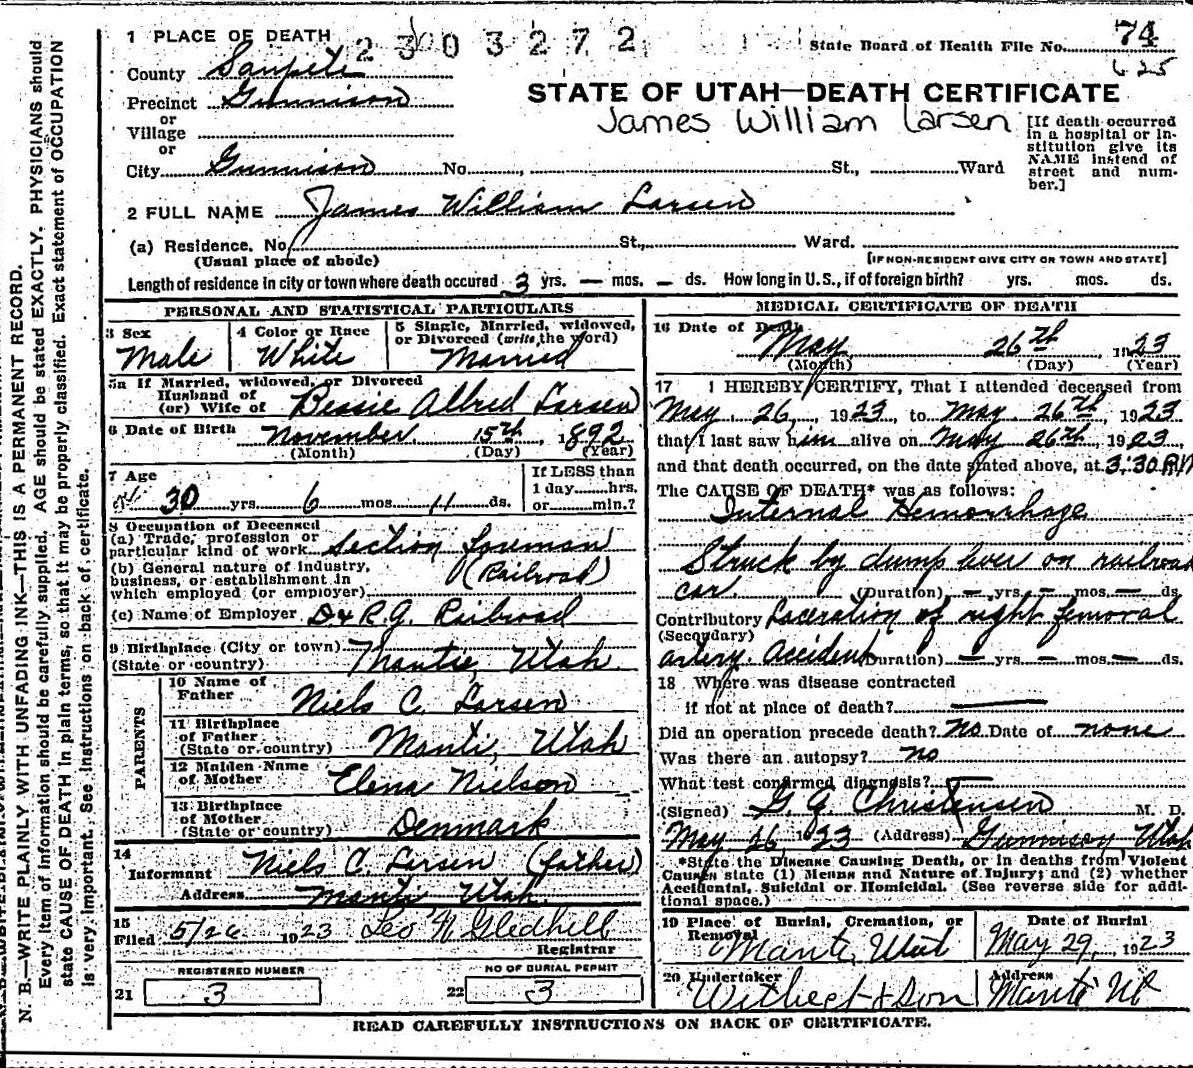 1 PLACE OF DEATH
2303272
State Board of Health File No. 74
625
County Sanpete
STATE OF UTAH—DEATH CERTIFICATE
Precinct Gunnison
or
Village
or
James William Larsen
[If death occurred in a hospital or in-stitution give its NAME instead of street and num-ber.]
City Gunnison No. , St., Ward
2 FULL NAME James William Larsen
(a) Residence. No. St., Ward.
(Usual place of abode) [IF NON-RESIDENT GIVE CITY OR TOWN AND STATE]
Length of residence in city or town where death occured 3 yrs. — mos. — ds. How long in U.S., if of foreign birth? yrs. mos. ds.
PERSONAL AND STATISTICAL PARTICULARS
3 Sex
Male
4 Color or Race
White
5 Single, Married, widowed, or Divorced (write the word)
Married
5a If Married, widowed, or Divorced
Husband of
(or) Wife of Bessie Allred Larsen
6 Date of Birth November 15th, 1892
(Month) (Day) (Year)
7 Age
30 yrs. 6 mos. 11 ds.
If LESS than
1 day......hrs.
or......min.?
8 Occupation of Deceased
(a) Trade, profession or
particular kind of work Section foreman
(b) General nature of industry,
business, or establishment in (Railroad)
which employed (or employer)
(c) Name of Employer D & R.G. Railroad
9 Birthplace (City or town)
(State or country) Mantie, Utah
PARENTS
10 Name of
Father Niels C. Larsen
11 Birthplace
of Father
(State or country) Manti, Utah
12 Maiden Name
of Mother Elena Nielson
13 Birthplace
of Mother
(State or country) Denmark
14
Informant Niels C. Larsen (father)
Address Manti Utah.
15
Filed 5/26 1923 Leo N Gledhill
Registrar
REGISTERED NUMBER
21 3
NO OF BURIAL PERMIT
22 3
MEDICAL CERTIFICATE OF DEATH
16 Date of Death
May 26th, 1923
(Month) (Day) (Year)
17 I HEREBY CERTIFY, That I attended deceased from
May 26, 1923 to May 26th, 1923
that I last saw him alive on May 26th, 1923,
and that death occurred, on the date stated above, at 3:30 P.M
The CAUSE OF DEATH* was as follows:
Internal Hemorrhage
Struck by dump lever on railroad
car. (Duration) — yrs. — mos. — ds.
Contributory Laceration of right femoral
(Secondary)
artery. Accident (Duration) — yrs. — mos. — ds.
18 Where was disease contracted
if not at place of death?
Did an operation precede death? No Date of none
Was there an autopsy? no
What test confirmed diagnosis?
(Signed) G. G. Christensen M. D.
May 26 1923 (Address) Gunnison Utah
*State the Disease Causing Death, or in deaths from Violent
Causes state (1) Means and Nature of Injury; and (2) whether
Accidental, Suicidal or Homicidal. (See reverse side for addi-
tional space.)
19 Place of Burial, Cremation, or
Removal Manti, Utah
Date of Burial
May 29, 1923
20 Undertaker
Witbeck & Son
Address
Manti Ut
READ CAREFULLY INSTRUCTIONS ON BACK OF CERTIFICATE.
N. B.—WRITE PLAINLY WITH UNFADING INK—THIS IS A PERMANENT RECORD.
Every item of information should be carefully supplied. AGE should be stated EXACTLY. PHYSICIANS should
state CAUSE OF DEATH in plain terms, so that it may be properly classified. Exact statement of OCCUPATION
is very important. See instructions on back of certificate.